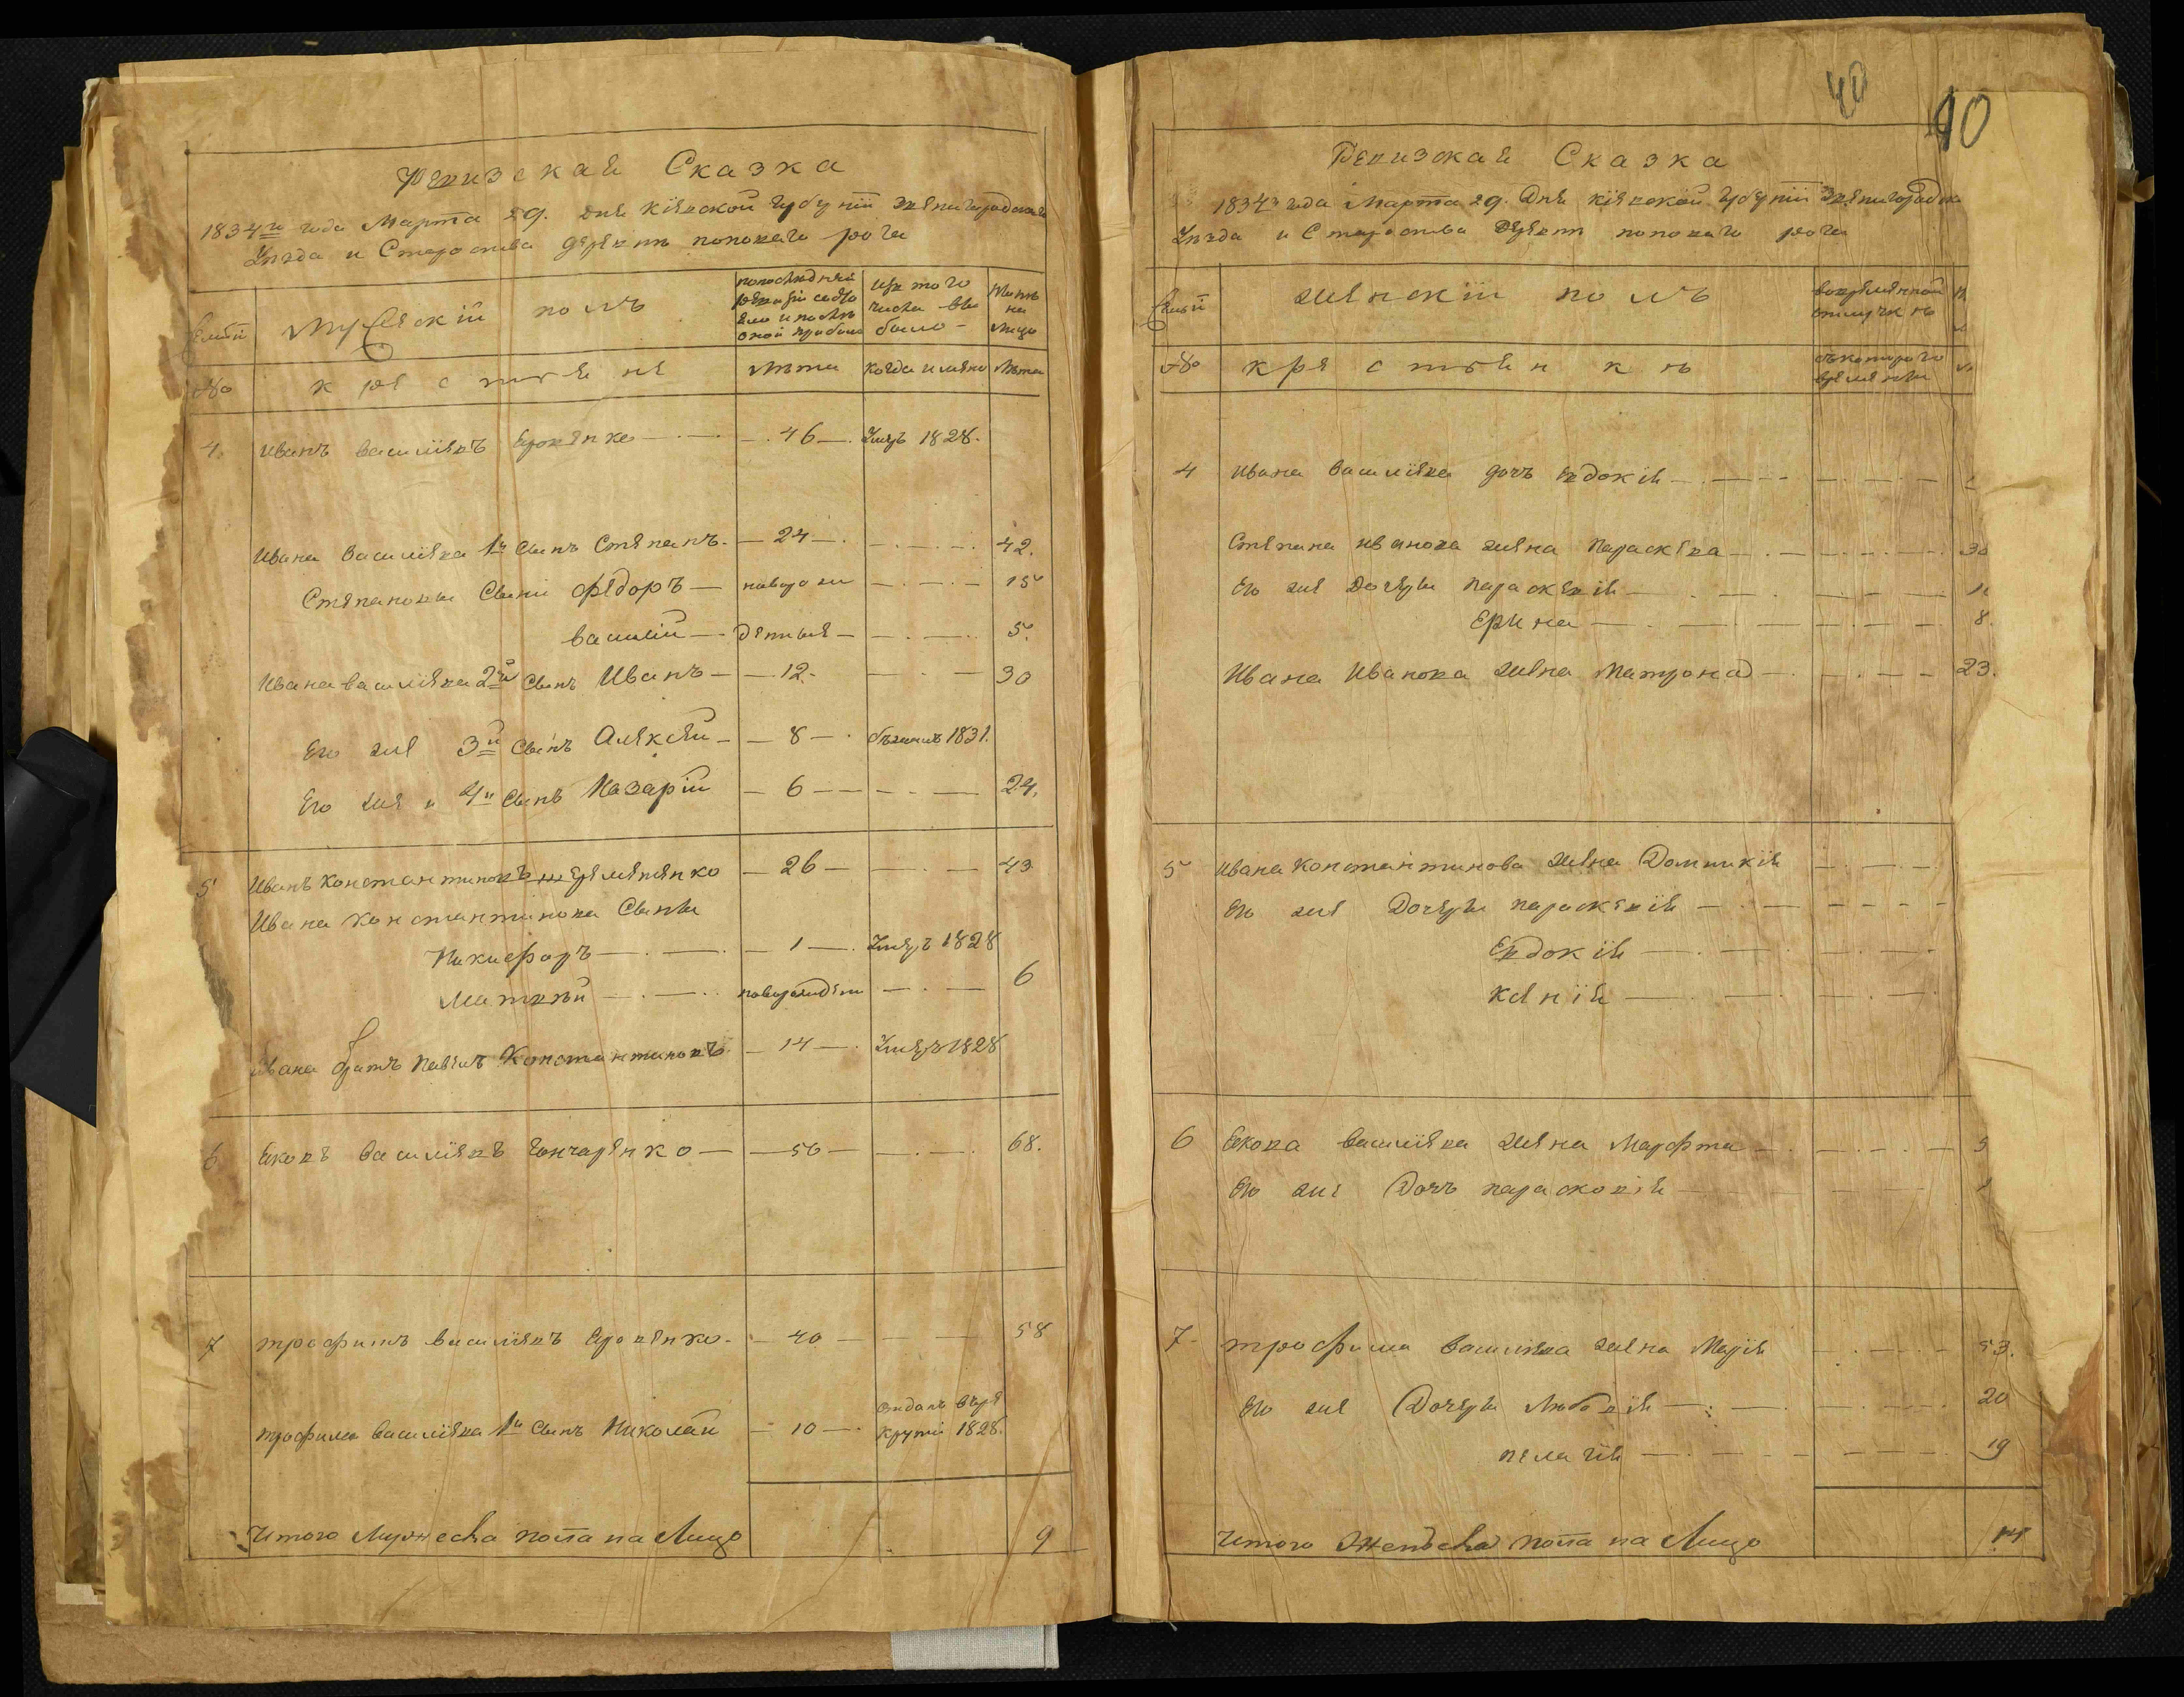 Ревизская Сказка
1834го года Марта 29. дня Кіевской Губерніи Звенигородскаго
Уезда и Староства деревни попового рога
Семьи
Мужескій полъ
По последней ревизіи состояло и после оной прибыло
Изъ того числа выбыло
Ныне на лицо
№
крестьяне
Лета
Когда имянно
Лета
4. Иванъ Васильевъ Яровенко 46 Умеръ 1828.
Ивана Васильева 1й Сынъ Степанъ 24 42.
Степановы Сыни Федоръ новорожден 15
Василій 5.
Ивана Васильева 2й Сынъ Иванъ 12. 30
Его же 3й Сынъ Алексей 8 бежалъ 1831.
Его же 4й Сынъ Назарій 6 24.
5 Иванъ Константиновъ 26 43
Ивана Константинова Сыны
Никифоръ 1 Умеръ 1828
Матвей новорожден 6
Ивана братъ Павелъ Константиновъ 14 Умеръ 1828
6 Яковъ Васильевъ Гончаренко 50 68.
7 Трофимъ Васильевъ Яровенко 40 58
Трофима Васильева 1й Сынъ Николай 10 отданъ въ рекруты 1828.
Итого Мужеска пола на Лицо 9
40
10
Ревизская Сказка
1834го года Марта 29. Дня Кіевской Губерніи Звенигородска
Уезда и Староства Деревни попового рога
Семьи
женскій полъ
во временной отлучке
№
крестьянки
съ которого времени
4 Ивана Васильева дочь Евдокія
Степана Иванова жена Параскева 30
Его же Дочери Параскевія
Ерина 8.
Ивана Иванова жена Матрона 23.
5 Ивана Константинова жена Домникія
Его же Дочери Параскевія
Евдокія
Ксенія
6 Якова Васильева жена Марфта
Его же Дочь Парасковія
7 Трофима Васильева жена Марія 53.
Его же Дочери Любовія 20
Пелагія 19
Итого Женска пола на Лицо 14